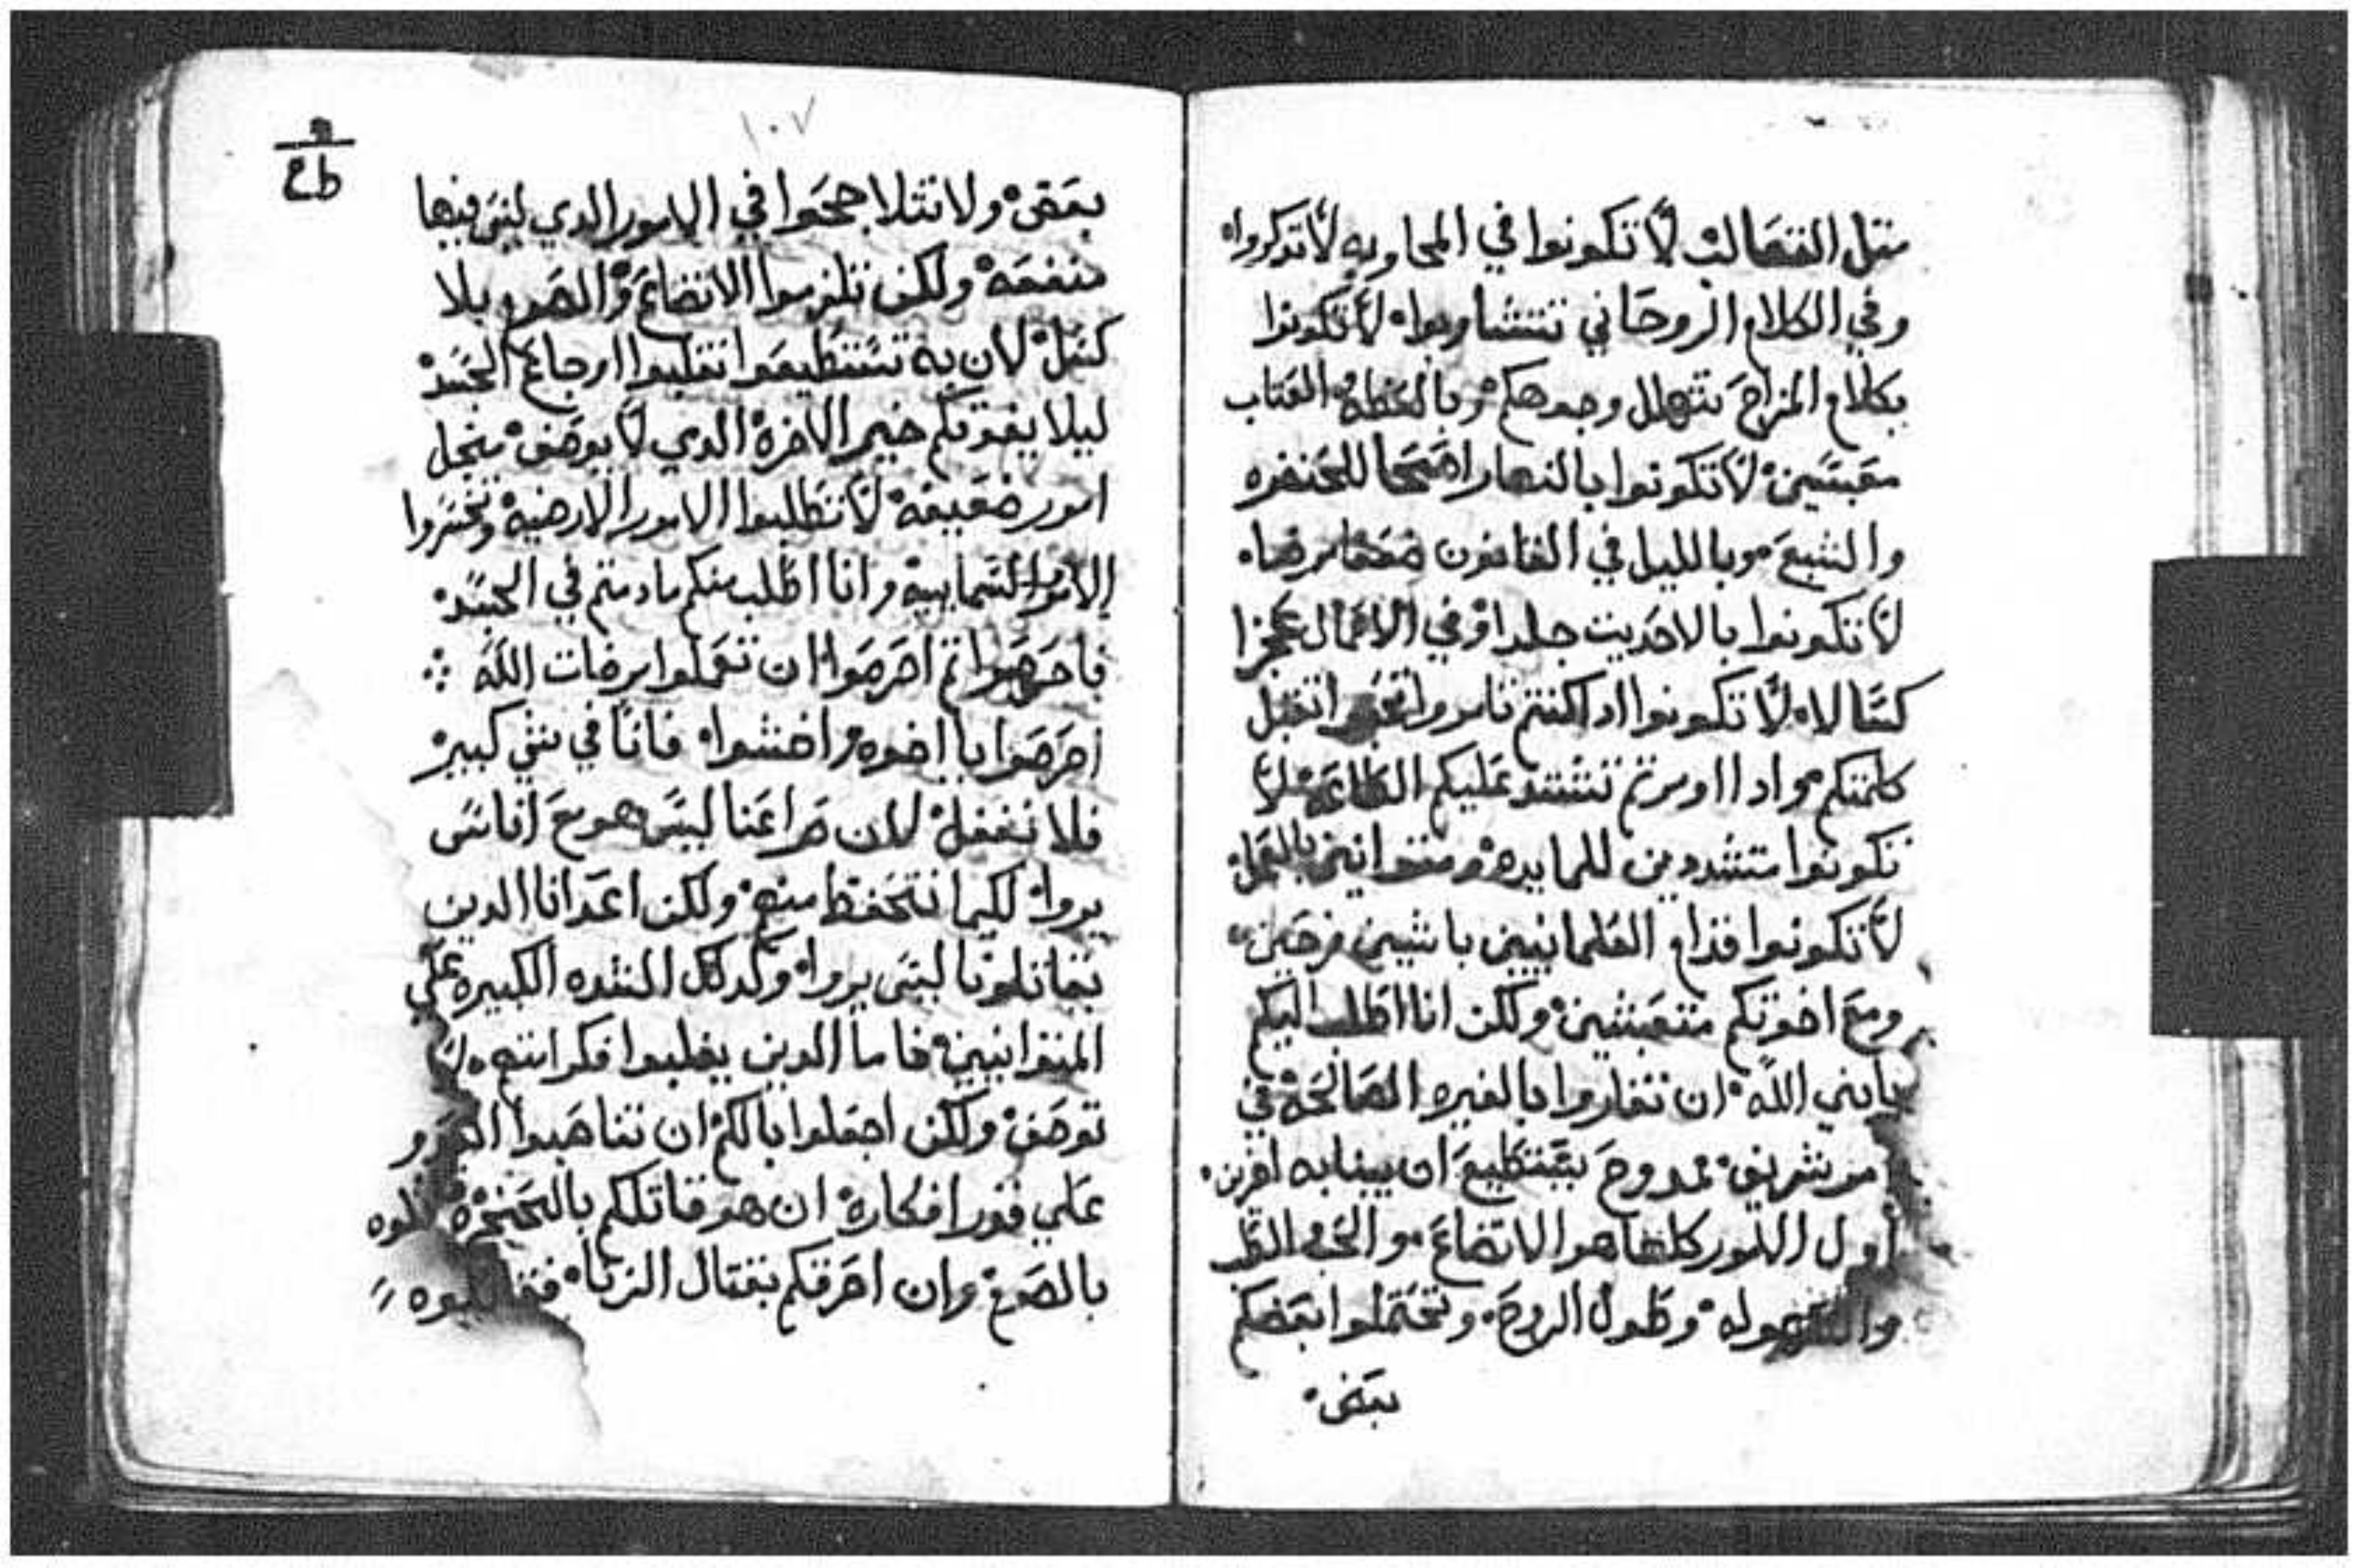 متل التعالب لا تكونوا في المحاوبه لا تدكروا
وفي الكلام الروحاني تتشاوبوا لا تكونوا
بكلام المزاح تتهلل وجوهكم وبالعظه العتاب
معبسين لا تكونوا بالنهار اصحا للحنجره
والشبع وبالليل في القانون
لا تكونوا بالاحديت جلدا وفي الاعمال عجزا
كسالا لا تكونوا ادا كنتم تامروا تقبل
كلمتكم وادا اومرتم تشتد عليكم الطاعه لا
تكونوا متشددين للمايده ومتوانين بالعمل
لا تكونوا قدام العلمانيين باشين فرحين
ومع اخوتكم متعبسين ولكن انا اطلب اليكم
يابني الله ان تغاروا بالغيره الصالحه في
امر شريف ممدوح يستطيع ان يبنا به اخرين
اول الامور كلها هو الاتضاع والحب
وطول الروح وتحتملوا بعضكم
بعض
١٠٧
بعض ولا تتلاججوا في الامور الدي ليس فيها
منفعه ولكن تلزموا الاتضاع والصوم بلا
كسل لان به تستطيعوا تغلبوا اوجاع الجسد
ليلا يفوتكم خير الاخرة الدي لا يوصف منجل
امور ضعيفه لا تطلبوا الامور الارضيه وتخسروا
الامور السماييه وانا اطلب منكم ما دمتم في الجسد
فاحرصوا تم احرصوا ان تعملوا مرضات الله
احرصوا يا اخوه واخشوا فانا في شي كبير
فلا نغفل لان صراعنا ليس هو مع اناس
يروا لكيما نتحفظ منهم ولكن اعدانا الدين
يقاتلونا ليس يروا وكدلك الشده الكبيره علي
المتوانيين فاما الدين يغلبوا فكرامتهم لا
توصف ولكن اجعلوا بالكم ان تناصبوا العدو
علي فور افكاره ان هو قاتلكم بالحنجرة
بالصوم وان احرقكم بقتال الزنا